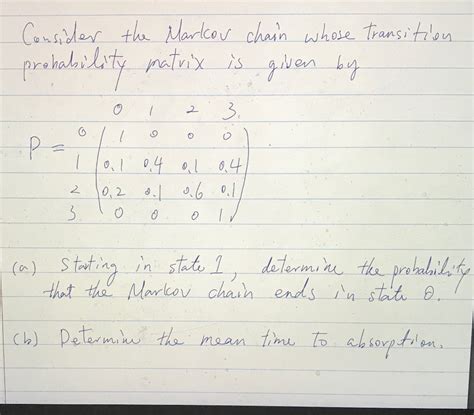 Consider the Markov chain whose transition
probability matrix is given by
0 1 2 3.
0 1 0 0 0
P = 1 0.1 0.4 0.1 0.4
2 0.2 0.1 0.6 0.1
3. 0 0 0 1
(a) Starting in state 1, determine the probability
that the Markov chain ends in state 0.
(b) Determine the mean time to absorption.